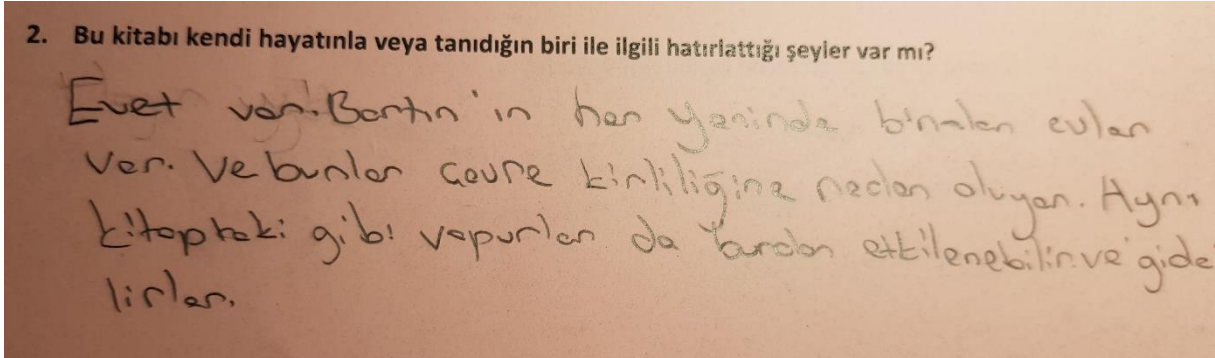 2. Bu kitabı kendi hayatınla veya tanıdığın biri ile ilgili hatırlattığı şeyler var mı?
Evet var. Bartın'ın her yerinde binalar evler
var. Ve bunlar çevre kirliliğine neden oluyor. Aynı
kitaptaki gibi vapurlar da bundan etkilenebilir ve gide
lirler.